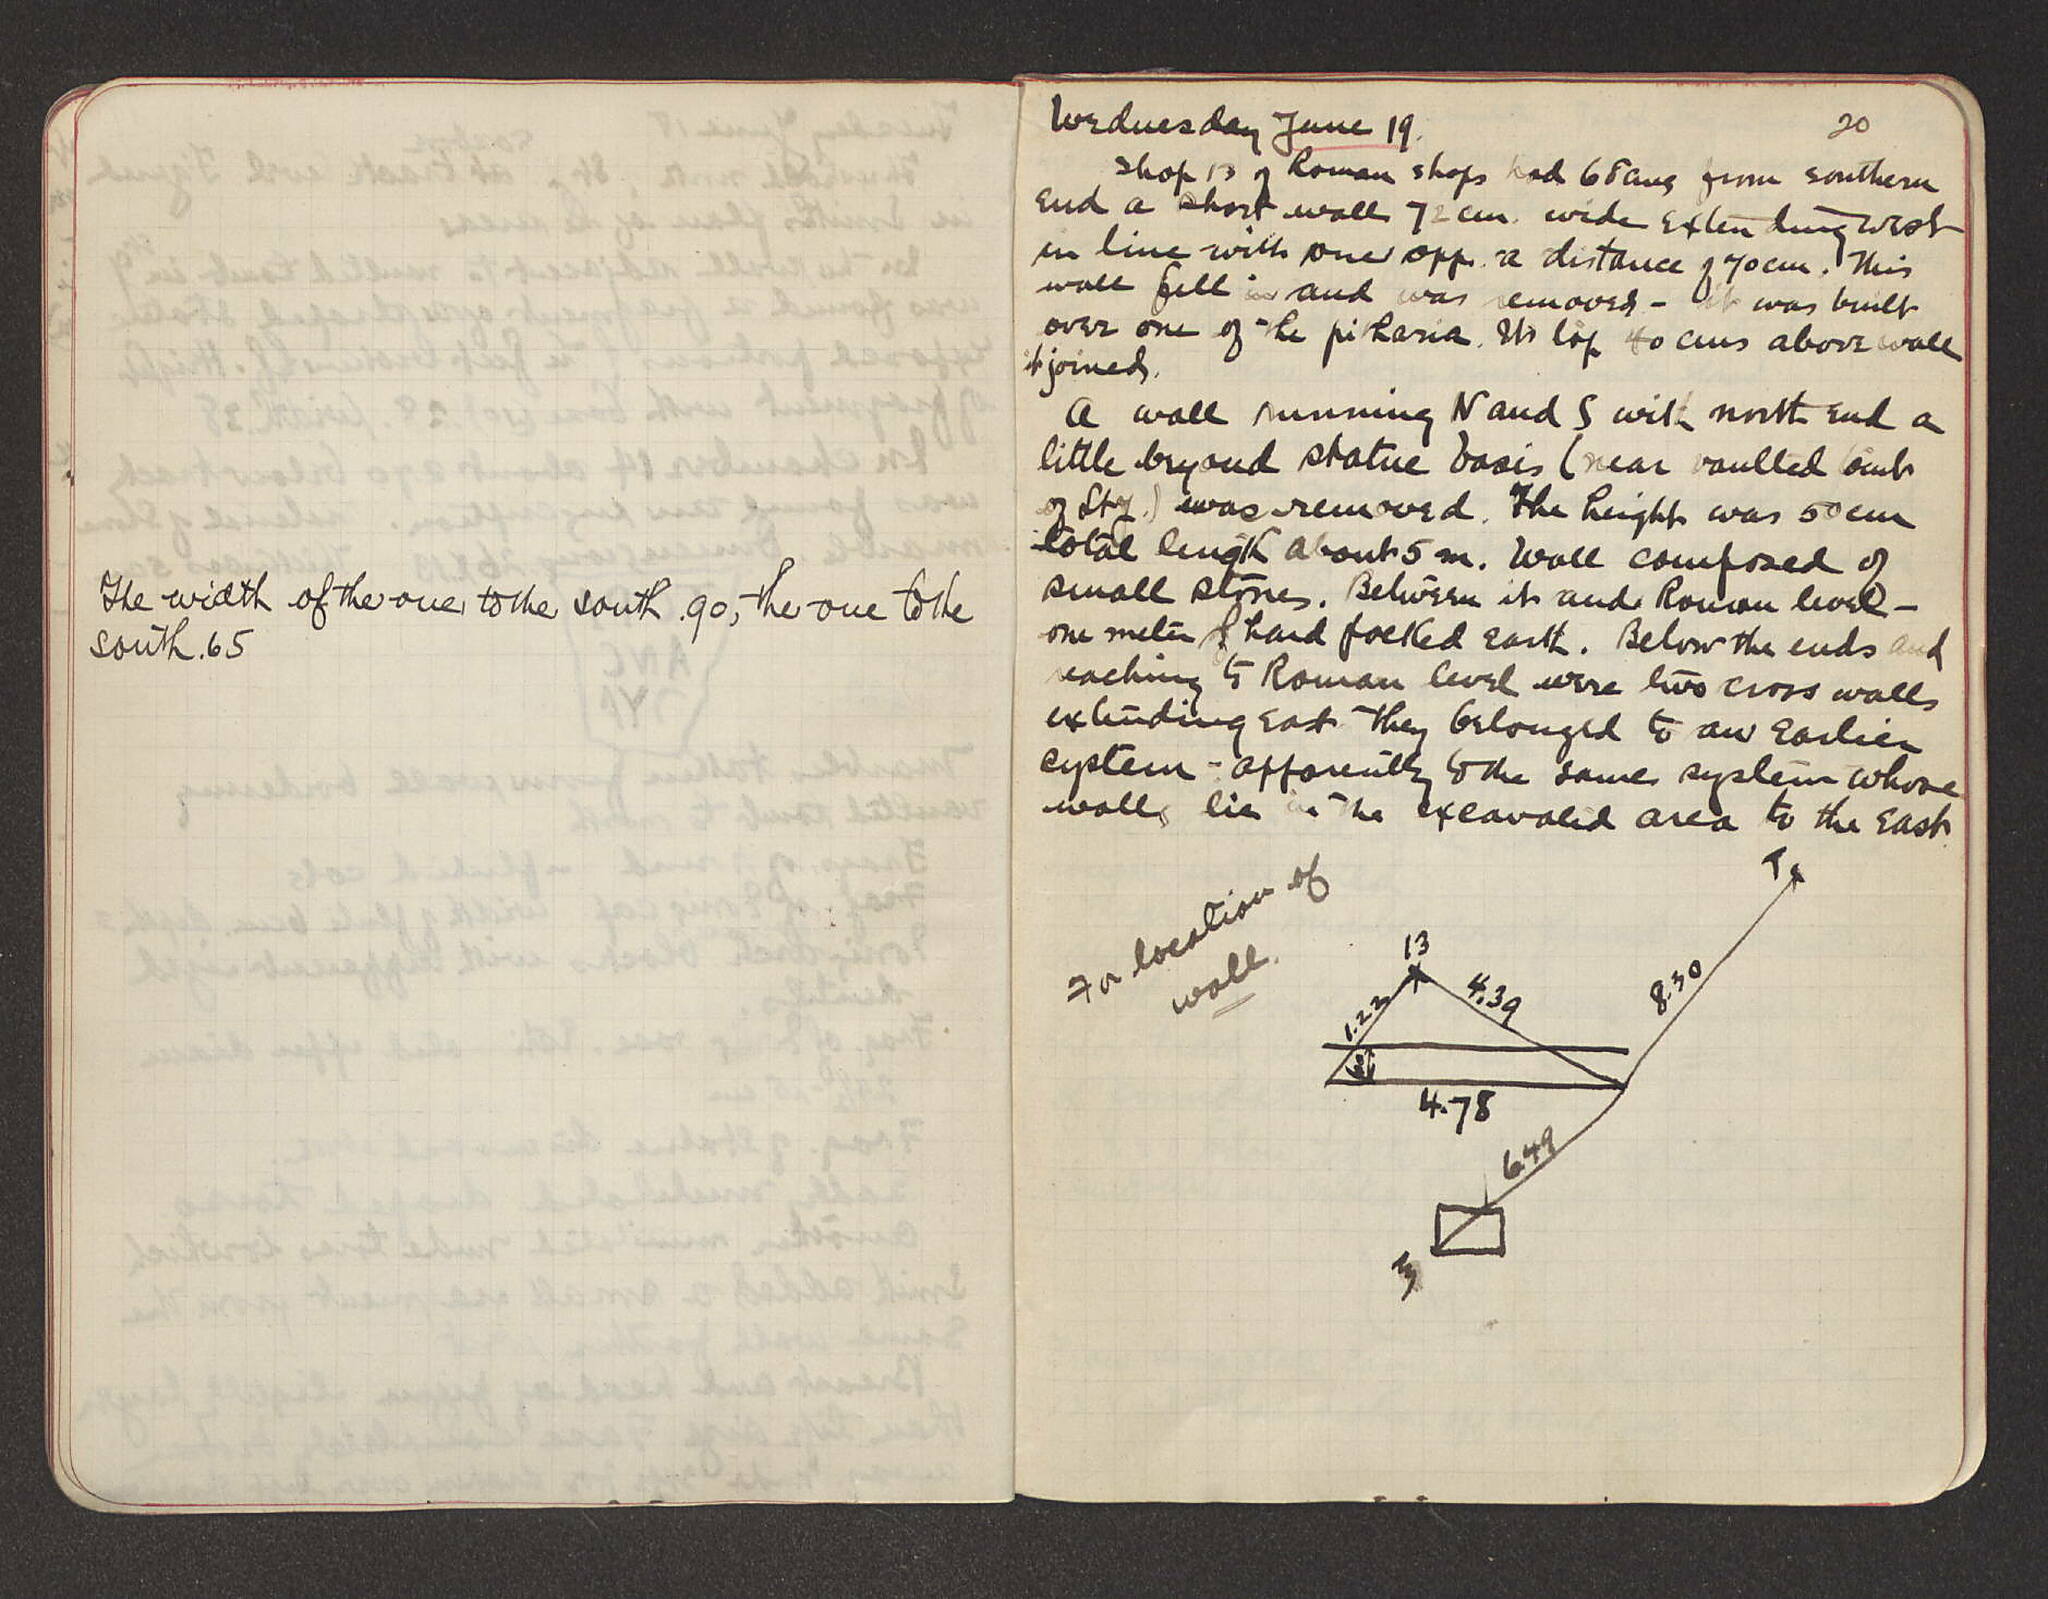 The width of the one to the south .90, the one to the
south .65
Wednesday June 19. 20
Shop 13 of Roman shops had 68 cms from southern
end a short wall 72 cm. wide extending west
in line with one opp. a distance of 70 cm. This
wall fell in and was removed - it was built
over one of the pitharia. Its top 40 cms above wall
it joined.
A wall running N and S with north end a
little beyond statue basis (near vaulted tomb
of Stg.) was removed. The height was 50 cm
total length about 5 m. Wall composed of
small stones. Between it and Roman level -
one meter of hard packed earth. Below the ends and
reaching to Roman level were two cross walls
extending east they belonged to an earlier
system - apparently to the same system whose
walls lie in the excavated area to the east.
For location of
wall.
13
1.23
4.39
8.30
4.78
6.49